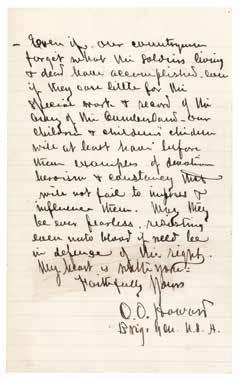 – Even if our countrymen
forget what the soldiers living
& dead have accomplished, even
if they care little for the
special work & record of the
Army of the Cumberland – our
children & children's children
will at least have before
them examples of devotion
heroism & constancy that
will not fail to impress &
influence them. May they
be ever fearless, resisting
even unto blood if need be
in defence of the right.
My heart is with you –
Faithfully Yours
O. O. Howard
Brig. Gen. U.S.A.